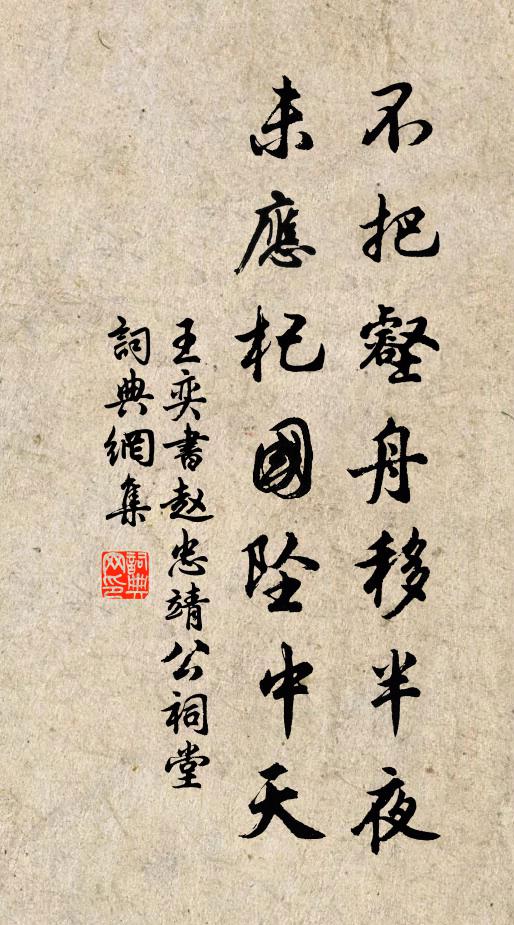 不把壑舟移半夜
未應杞國坠中天
王奕書赵忠靖公祠堂
詞典網集
詞典網印